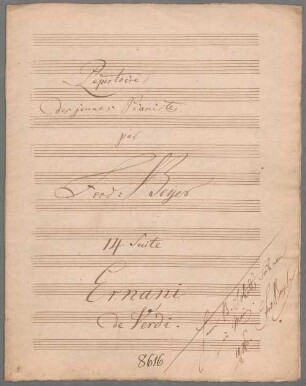 Répertoire
des jeunes Pianistes
par
Ferd: Beyer
14 Suite
Ernani
de Verdi.
8616